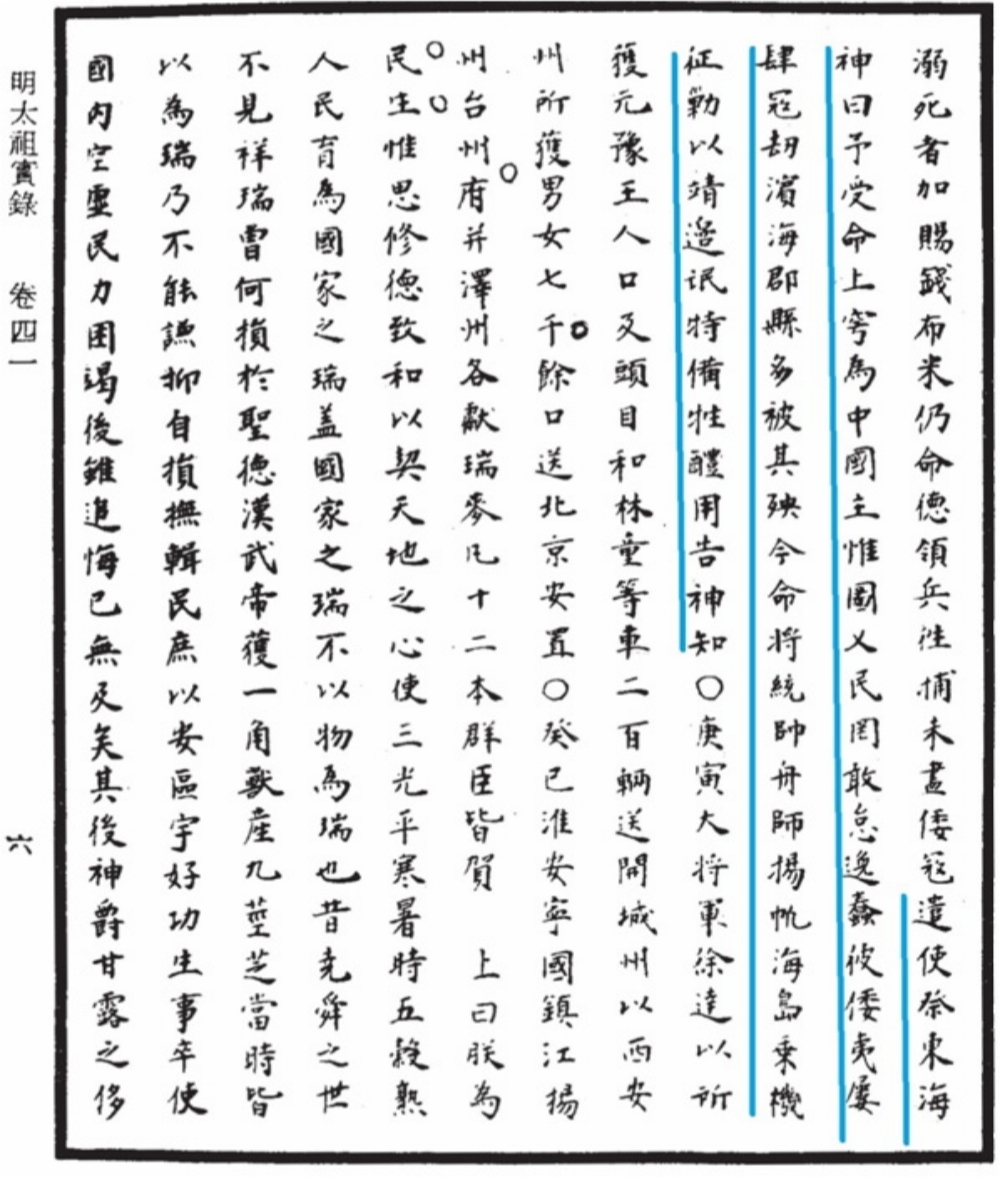 溺死者加賜錢布米仍命德領兵徃捕未盡倭冦遣使祭東海
神曰予受命上穹為中國主惟圖乂民罔敢怠逸蠢彼倭夷屡
肆冦刼濱海郡縣多被其殃今命将統帥舟師揚帆海島乗機
征勦以靖邉氓特備牲醴用告神知〇庚寅大将軍徐逹以所
獲元豫王人口及頭目和林童等車二百輛送開城州以西安
州所獲男女七千餘口送北京安置〇癸巳淮安寧國鎮江揚
州台州府并澤州各獻瑞麥凡十二本群臣皆賀 上曰朕為
民生惟思修德致和以契天地之心使三光平寒暑時五穀熟
人民育為國家之瑞盖國家之瑞不以物為瑞也昔堯舜之世
不見祥瑞曽何損於聖德漢武帝獲一角獸産九莖芝當時皆
以為瑞乃不能謙抑自損撫輯民庶以安區宇好功生事卒使
國内空虚民力困竭後雖追悔已無及矣其後神爵甘露之侈
明太祖實錄 卷四一
六